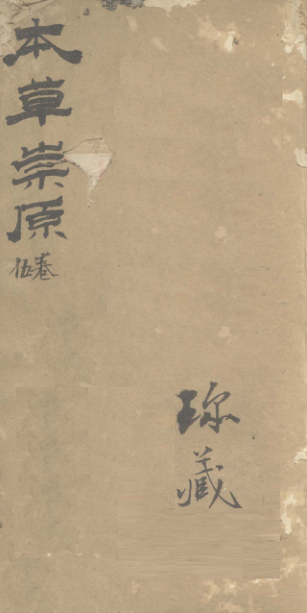 本草崇原
卷伍
珎藏